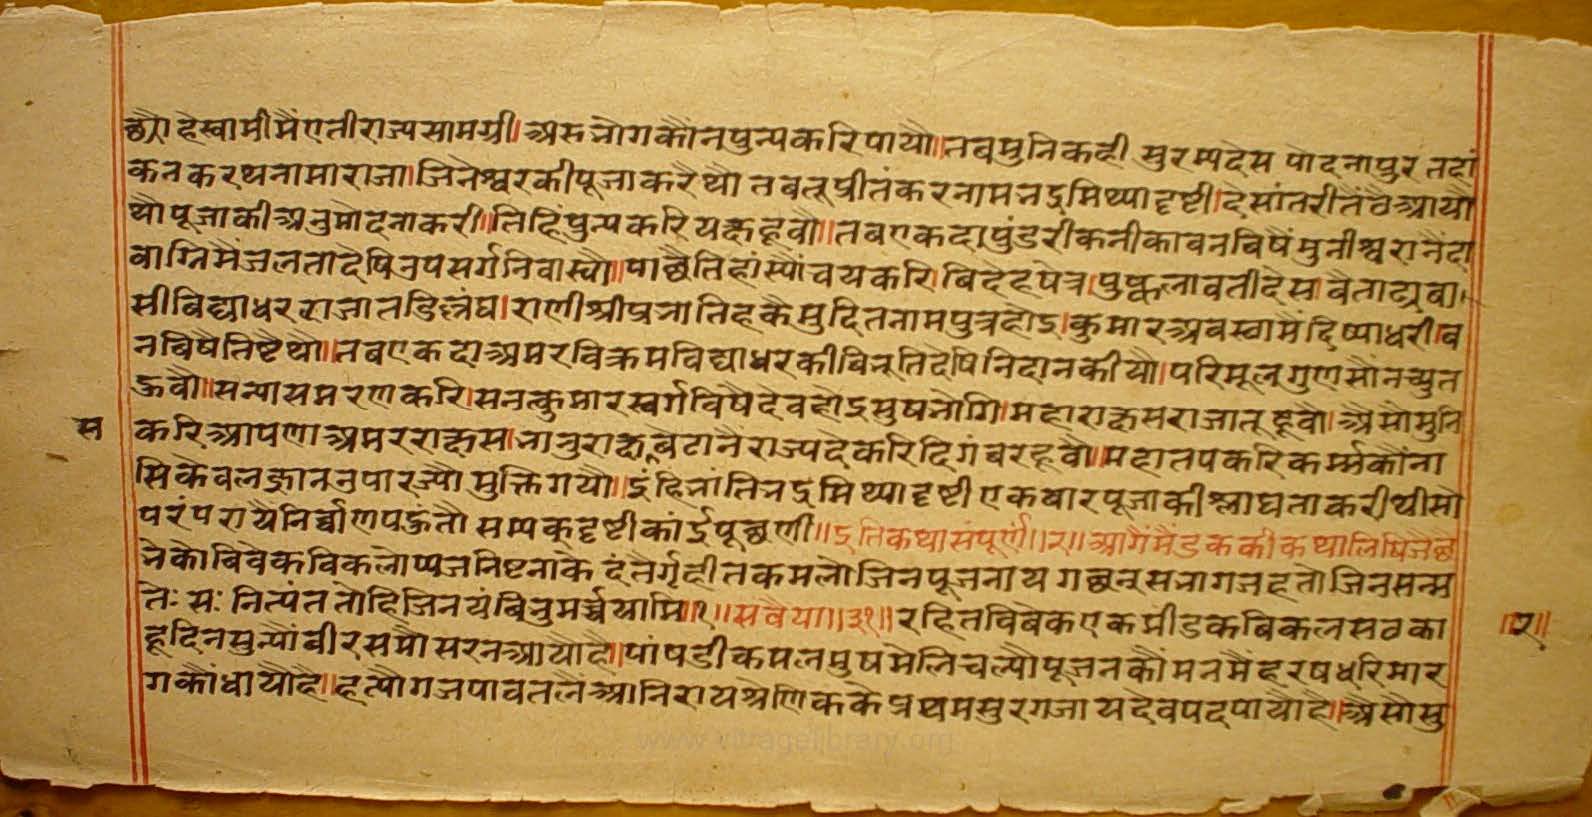 छ्यौ हे स्वामी मैं एती राज्य सामग्री। अर भोग कौंन पुन्य करि पायौ॥ तब मुनि कही सुरम्य देस पोदनापुर तहां
कनकरथ नामा राजा। जिनेश्वर की पूजा करै थौ तब तू प्रीतंकर नाम भद्र मिथ्या दृष्टी। देसांतरी तं वै आयौ
थौ पूजा की अनुमोदना करी॥ तिहिं पुन्य करि यक्ष हूवौ॥ तब एकदा पुंडरीकनी का वन विषैं मुनीश्वरानैं दा
वाग्नि मैं जलता देषि उपसर्ग निवास्यौ॥ पाछै तिहां स्यौं चय करि। बिदेह षेत्र। पुष्कलावती देस। वैताढ्य वा
सी विद्याधर राजा तडिल्लंघ। राणी श्रीप्रभा तिह कै मुदित नाम पुत्र होइ। कुमार अवस्वा मैं दिष्या धरी। ब
न बिषै तिष्टै थौ॥ तब एकदा अमरविक्रम विद्याधर की बिभूति देषि निदान कीयौ। परि मूलगुण सौं न च्युत
हूवौ॥ सन्यास मरण करि। सनत्कुमार स्वर्ग विषै देव होइ सुष भोगि। महाराक्षस राजा तू हूवो। अैसौ मुनि
स
करि आपणा अमरराक्षस। भानुराक्ष बेटा नैं राज्य दे करि दिगंबर हूवौ॥ महा तप करि कर्म्म कौं ना
सि केवल ज्ञान उपारज्यौ मुक्ति गयौ॥ इंहि भांति भद्र मिथ्या दृष्टी एक बार पूजा की श्लाघता करी थी सो
परंपरायै निर्व्वाण पहुंतौ सम्यक दृष्टी कां ई पूछणी॥ इति कथा संपूर्ण॥ २॥ आगैं मैंडक की कथा लिषिजे छै
भेको बिवेक विकलोप्पजनिष्ट नाके दंतैर्गृहीत कमलो जिन पूजनाय गछन् सभागजहतो जिन सन्म
तेः सः नित्यं ततो हि जिनयं बिभुमर्च्चयामि॥ १॥ सवैया॥ ३१॥ रहित विबेक एक मीडक बिकल सठ का
॥२॥
हू दिन सुन्यौं बीर समौसरन आयौ है॥ पांषडी कमल मुष मेलि चल्यौ पूजन कौं मन मैं हरष धरि मार
ग कौं धायौ है॥ हत्यौ गज पाव तलें आनि राय श्रेणिक के प्रथम सुरग जाय देव पद पायौ है॥ अैसौ सु
www.vitragelibrary.org